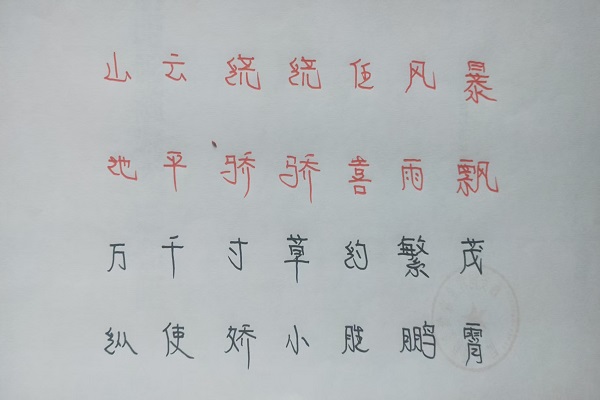 山云绕绕任风暴
地平骄骄喜雨飘
万千寸草约繁茂
纵使娇小胜鹏霄